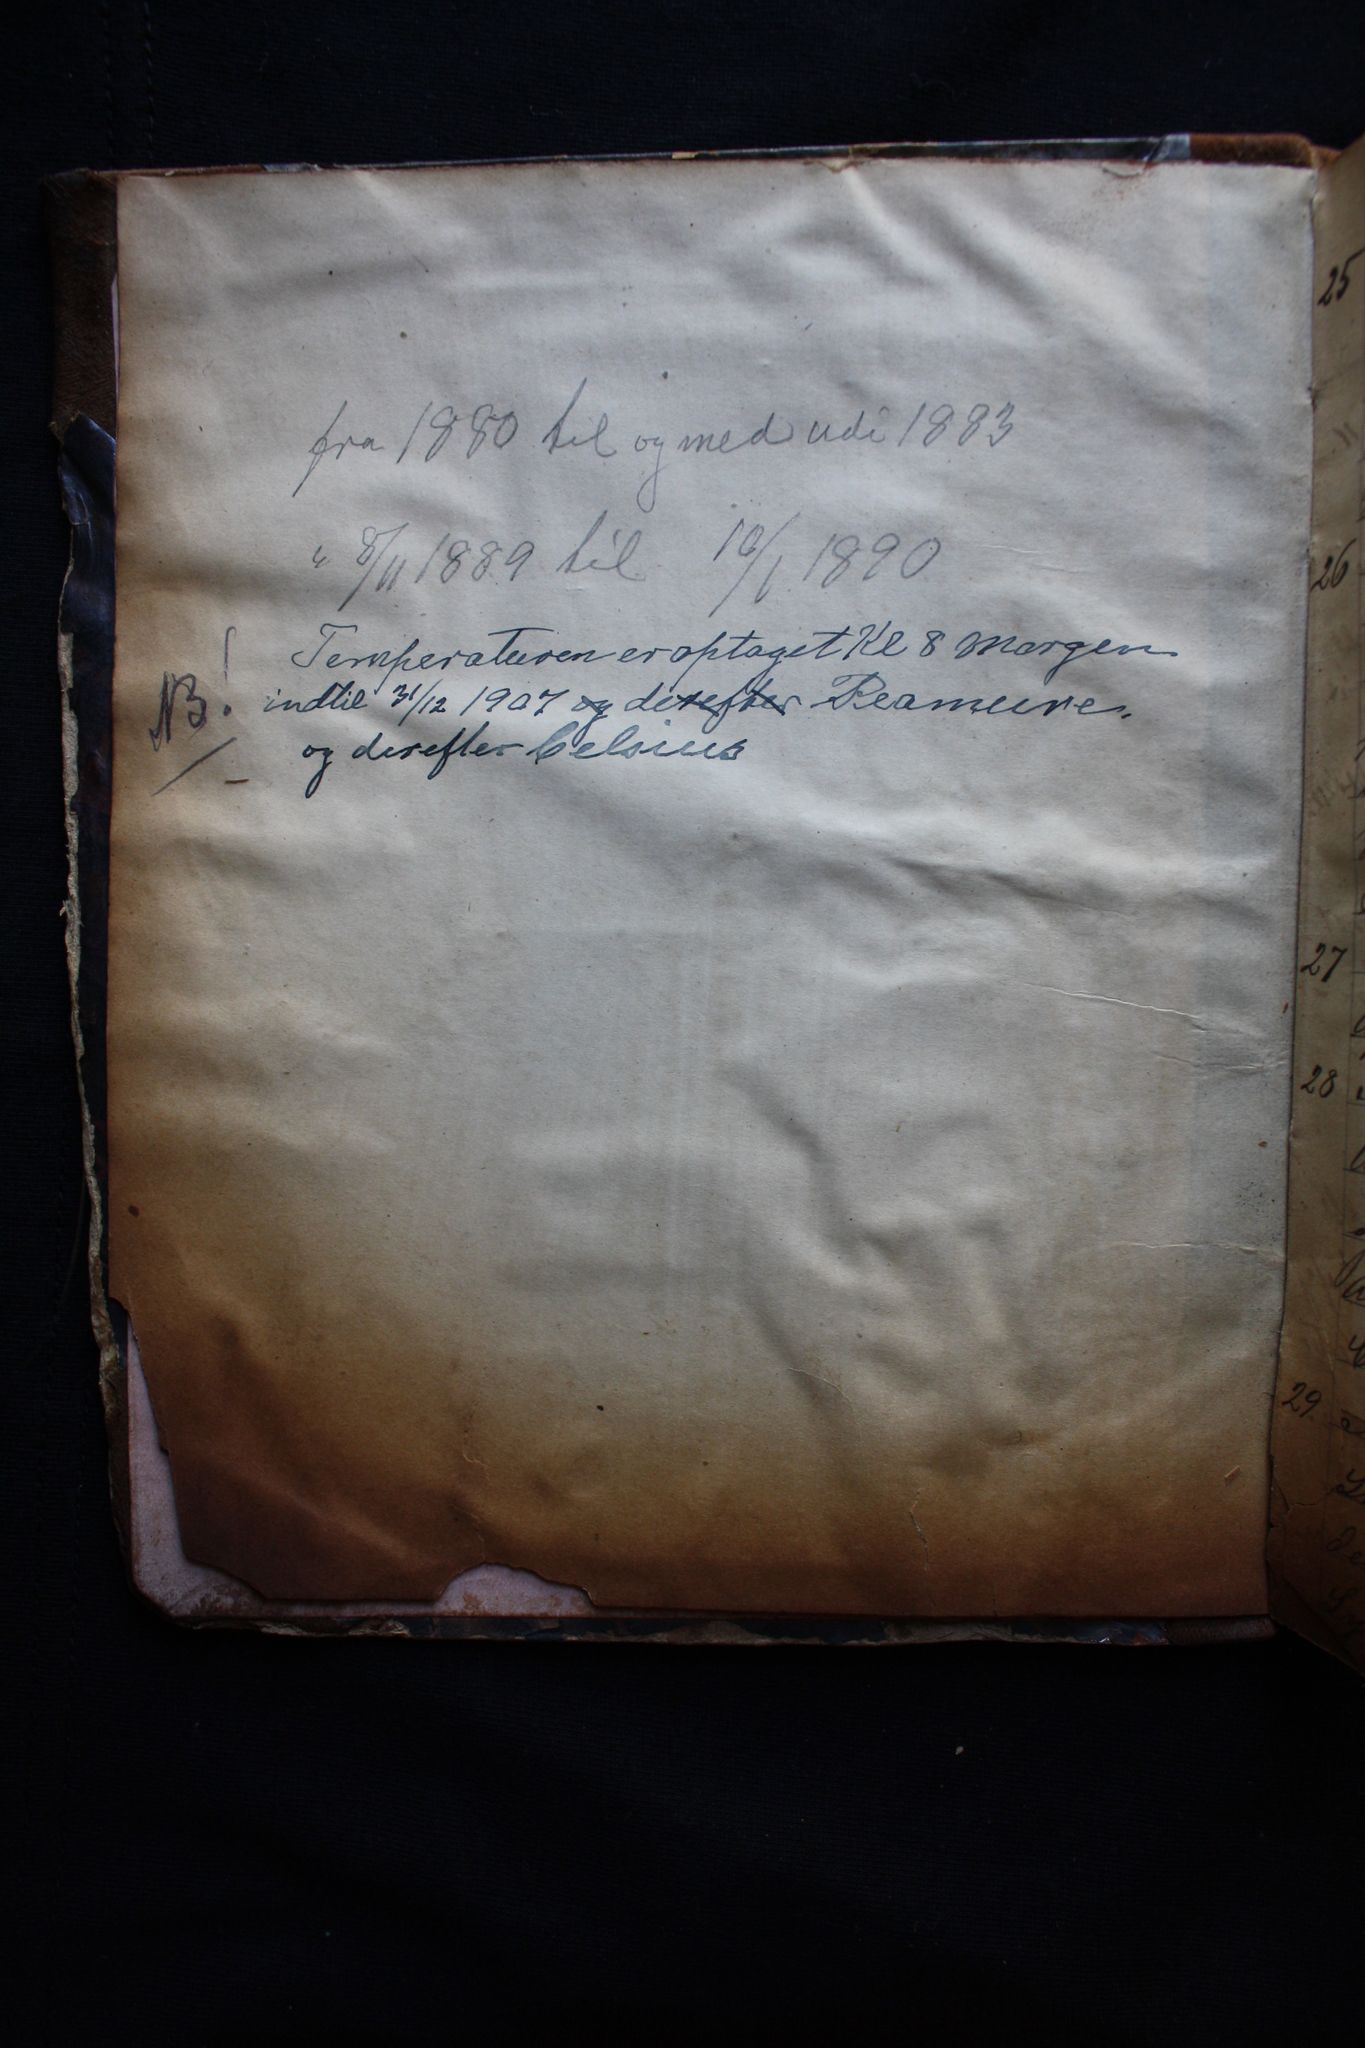 fra 1880 til og med udi 1883
" 8/11 1889 til 10/1 1890
NB! Temperaturen er optaget Kl 8 Morgen
indtil 31/12 1907 og derefter Reameure.
og derefter Celsius
25
26
27
28
29